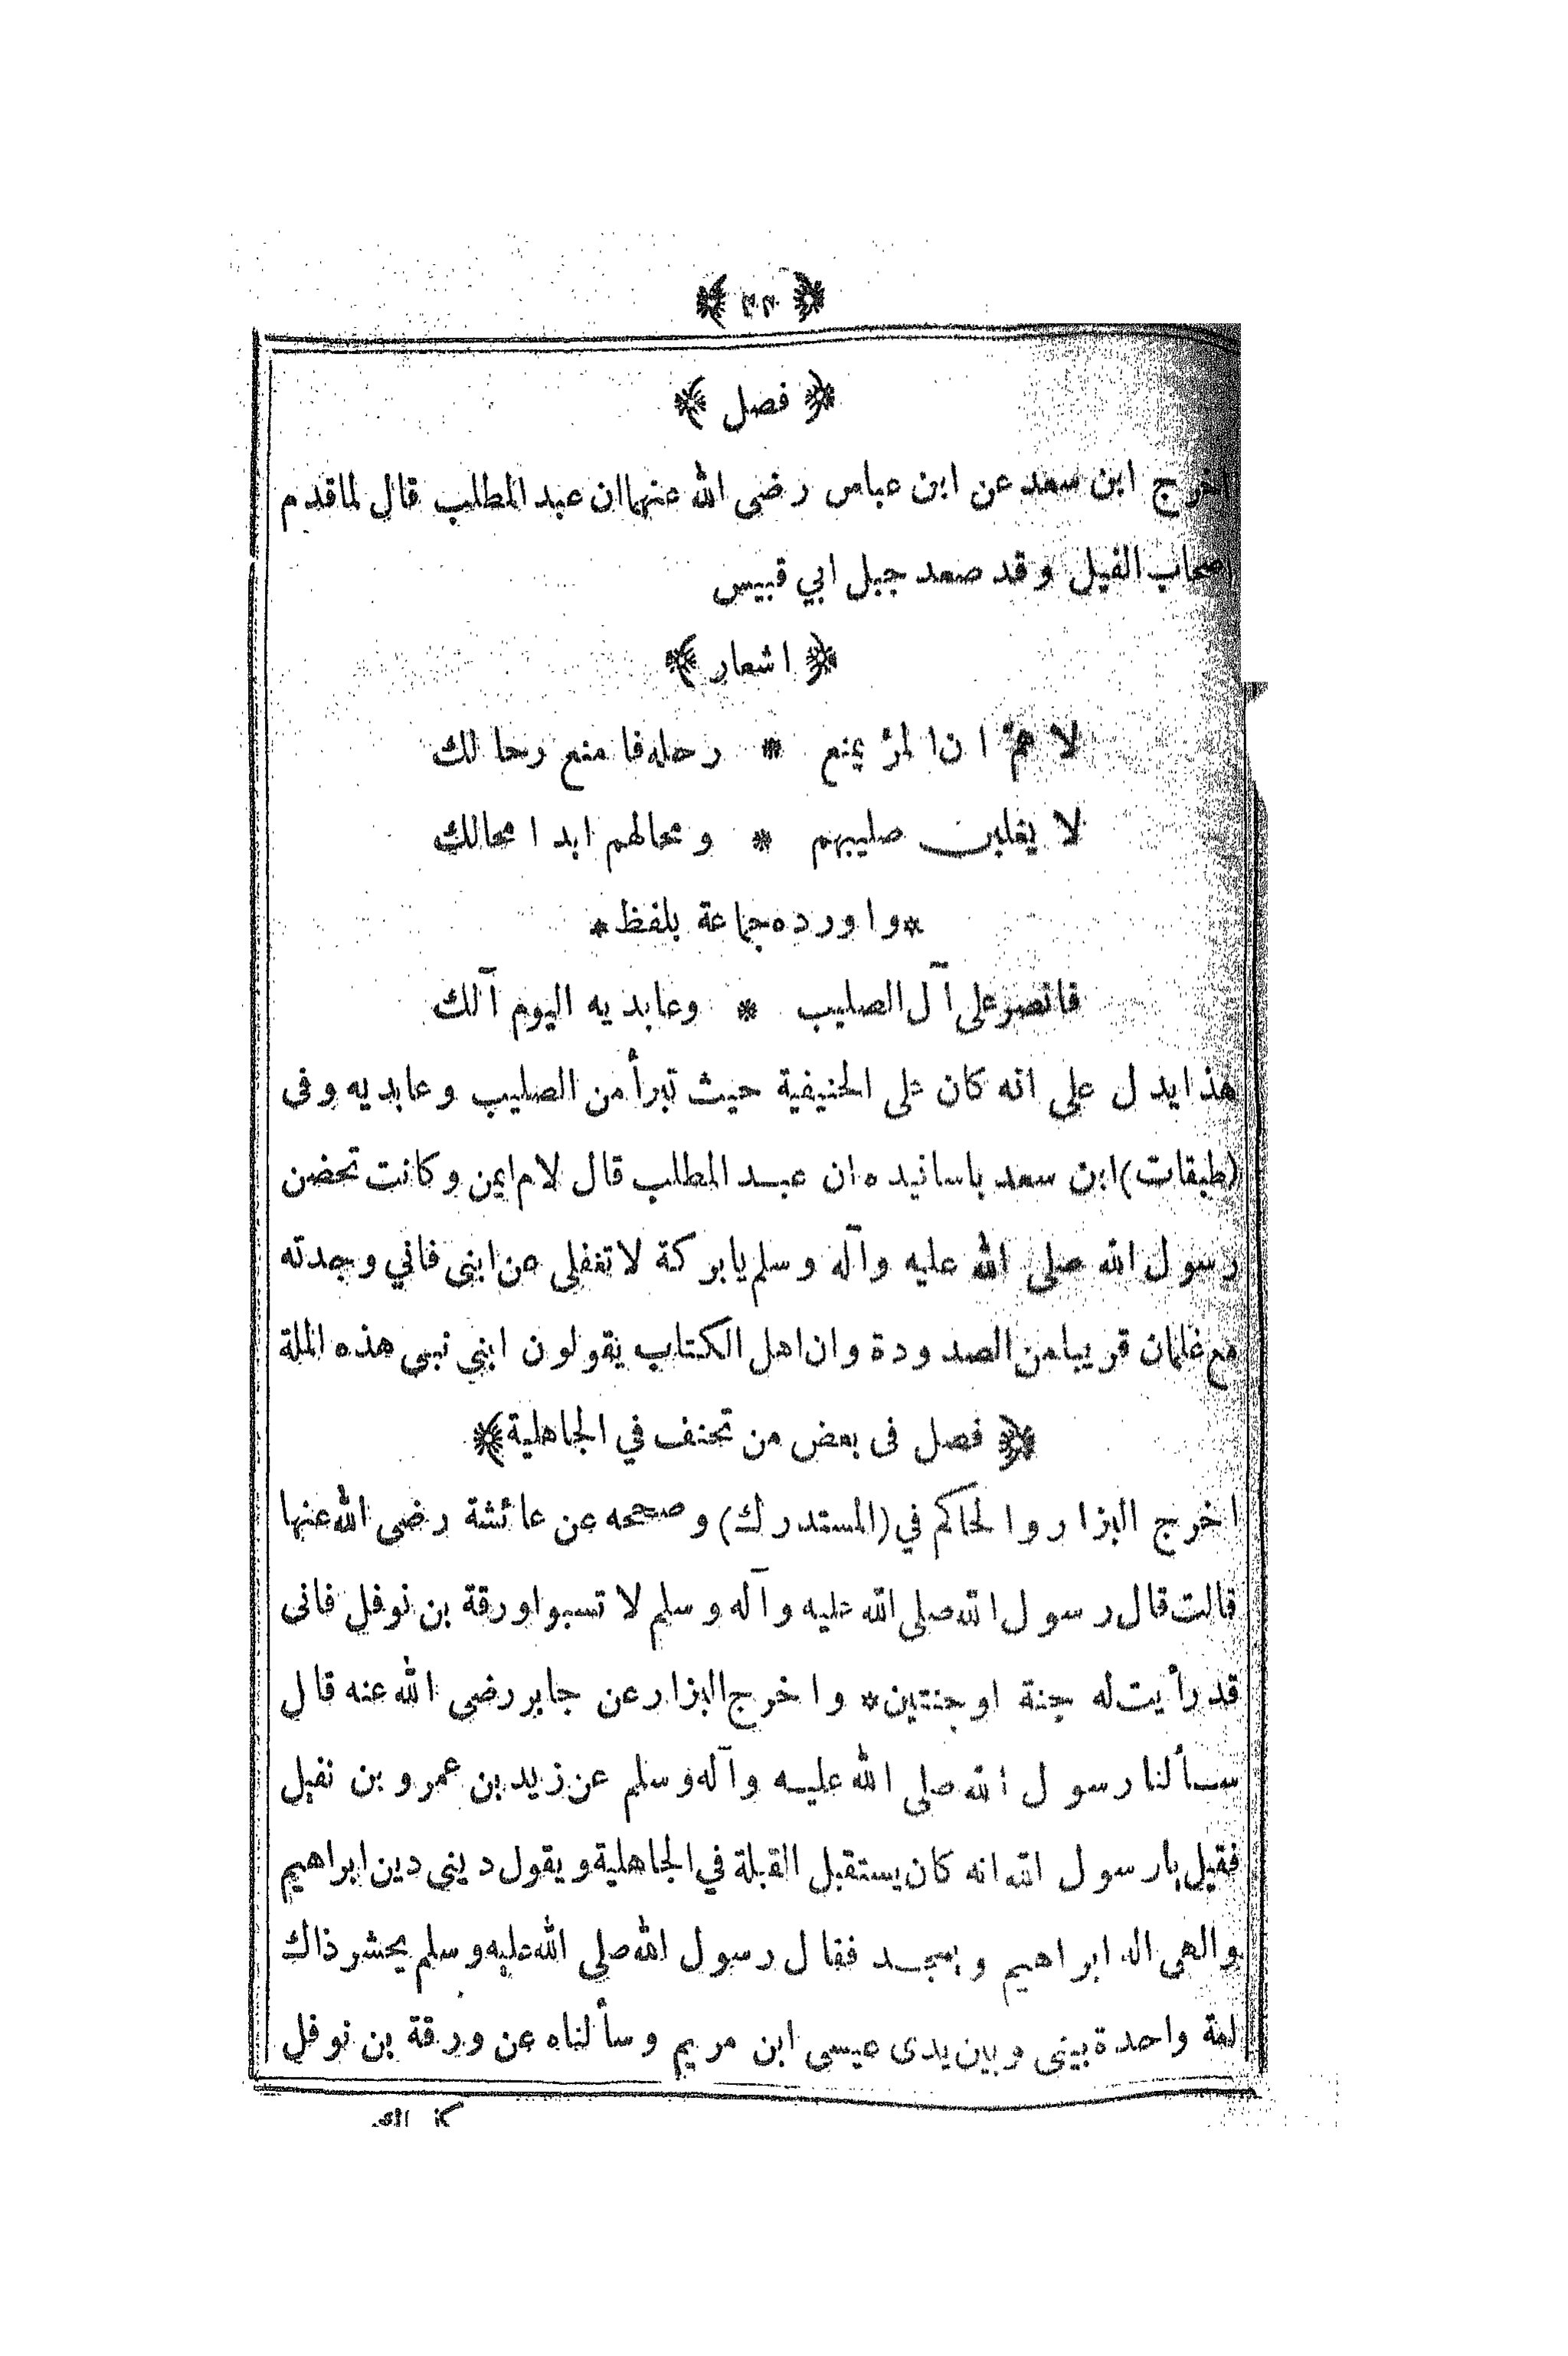 ﴿ ٢٢ ﴾
﴿ فصل ﴾
اخرج ابن سعد عن ابن عباس رضى الله عنهما ان عبد المطلب قال لما قدم
اصحاب الفيل وقد صعد جبل ابي قبيس
﴿ اشعار ﴾
لا همّ ان المرْ يمنع * رحله فا منع رحا لك
لا يغلبن صليبهم * ومحالهم ابد ا محالك
*وا ورده جماعة بلفظ*
فانصر على آل الصليب * وعابديه اليوم آلك
هذا يدل على انه كان على الحنيفية حيث تبرأ من الصليب وعابديه وفى
(طبقات) ابن سعد باسانيده ان عبد المطلب قال لام ايمن وكانت تحضن
رسول الله صلى الله عليه وآله وسلم يا بركة لا تغفلى عن ابنى فاني وجدته
مع غلمان قريبا من الصدودة وان اهل الكتاب يقولون ابني نبى هذه الملة
﴿ فصل فى بعض من تحنف في الجاهلية ﴾
اخرج البزار والحاكم في (المستدرك) وصححه عن عائشة رضى الله عنها
قالت قال رسول الله صلى الله عليه وآله وسلم لا تسبوا ورقة بن نوفل فانى
قد رأيت له جنة او جنتين* واخرج البزار عن جابر رضى الله عنه قال
سألنا رسول الله صلى الله عليه وآله وسلم عن زيد بن عمرو بن نفيل
فقيل يا رسول الله انه كان يستقبل القبلة في الجاهلية ويقول دينى دين ابراهيم
والهى اله ابراهيم ويسجد فقال رسول الله صلى الله عليه وسلم يحشر ذاك
امة واحدة بينى وبين يدى عيسى ابن مريم وسألناه عن ورقة بن نوفل